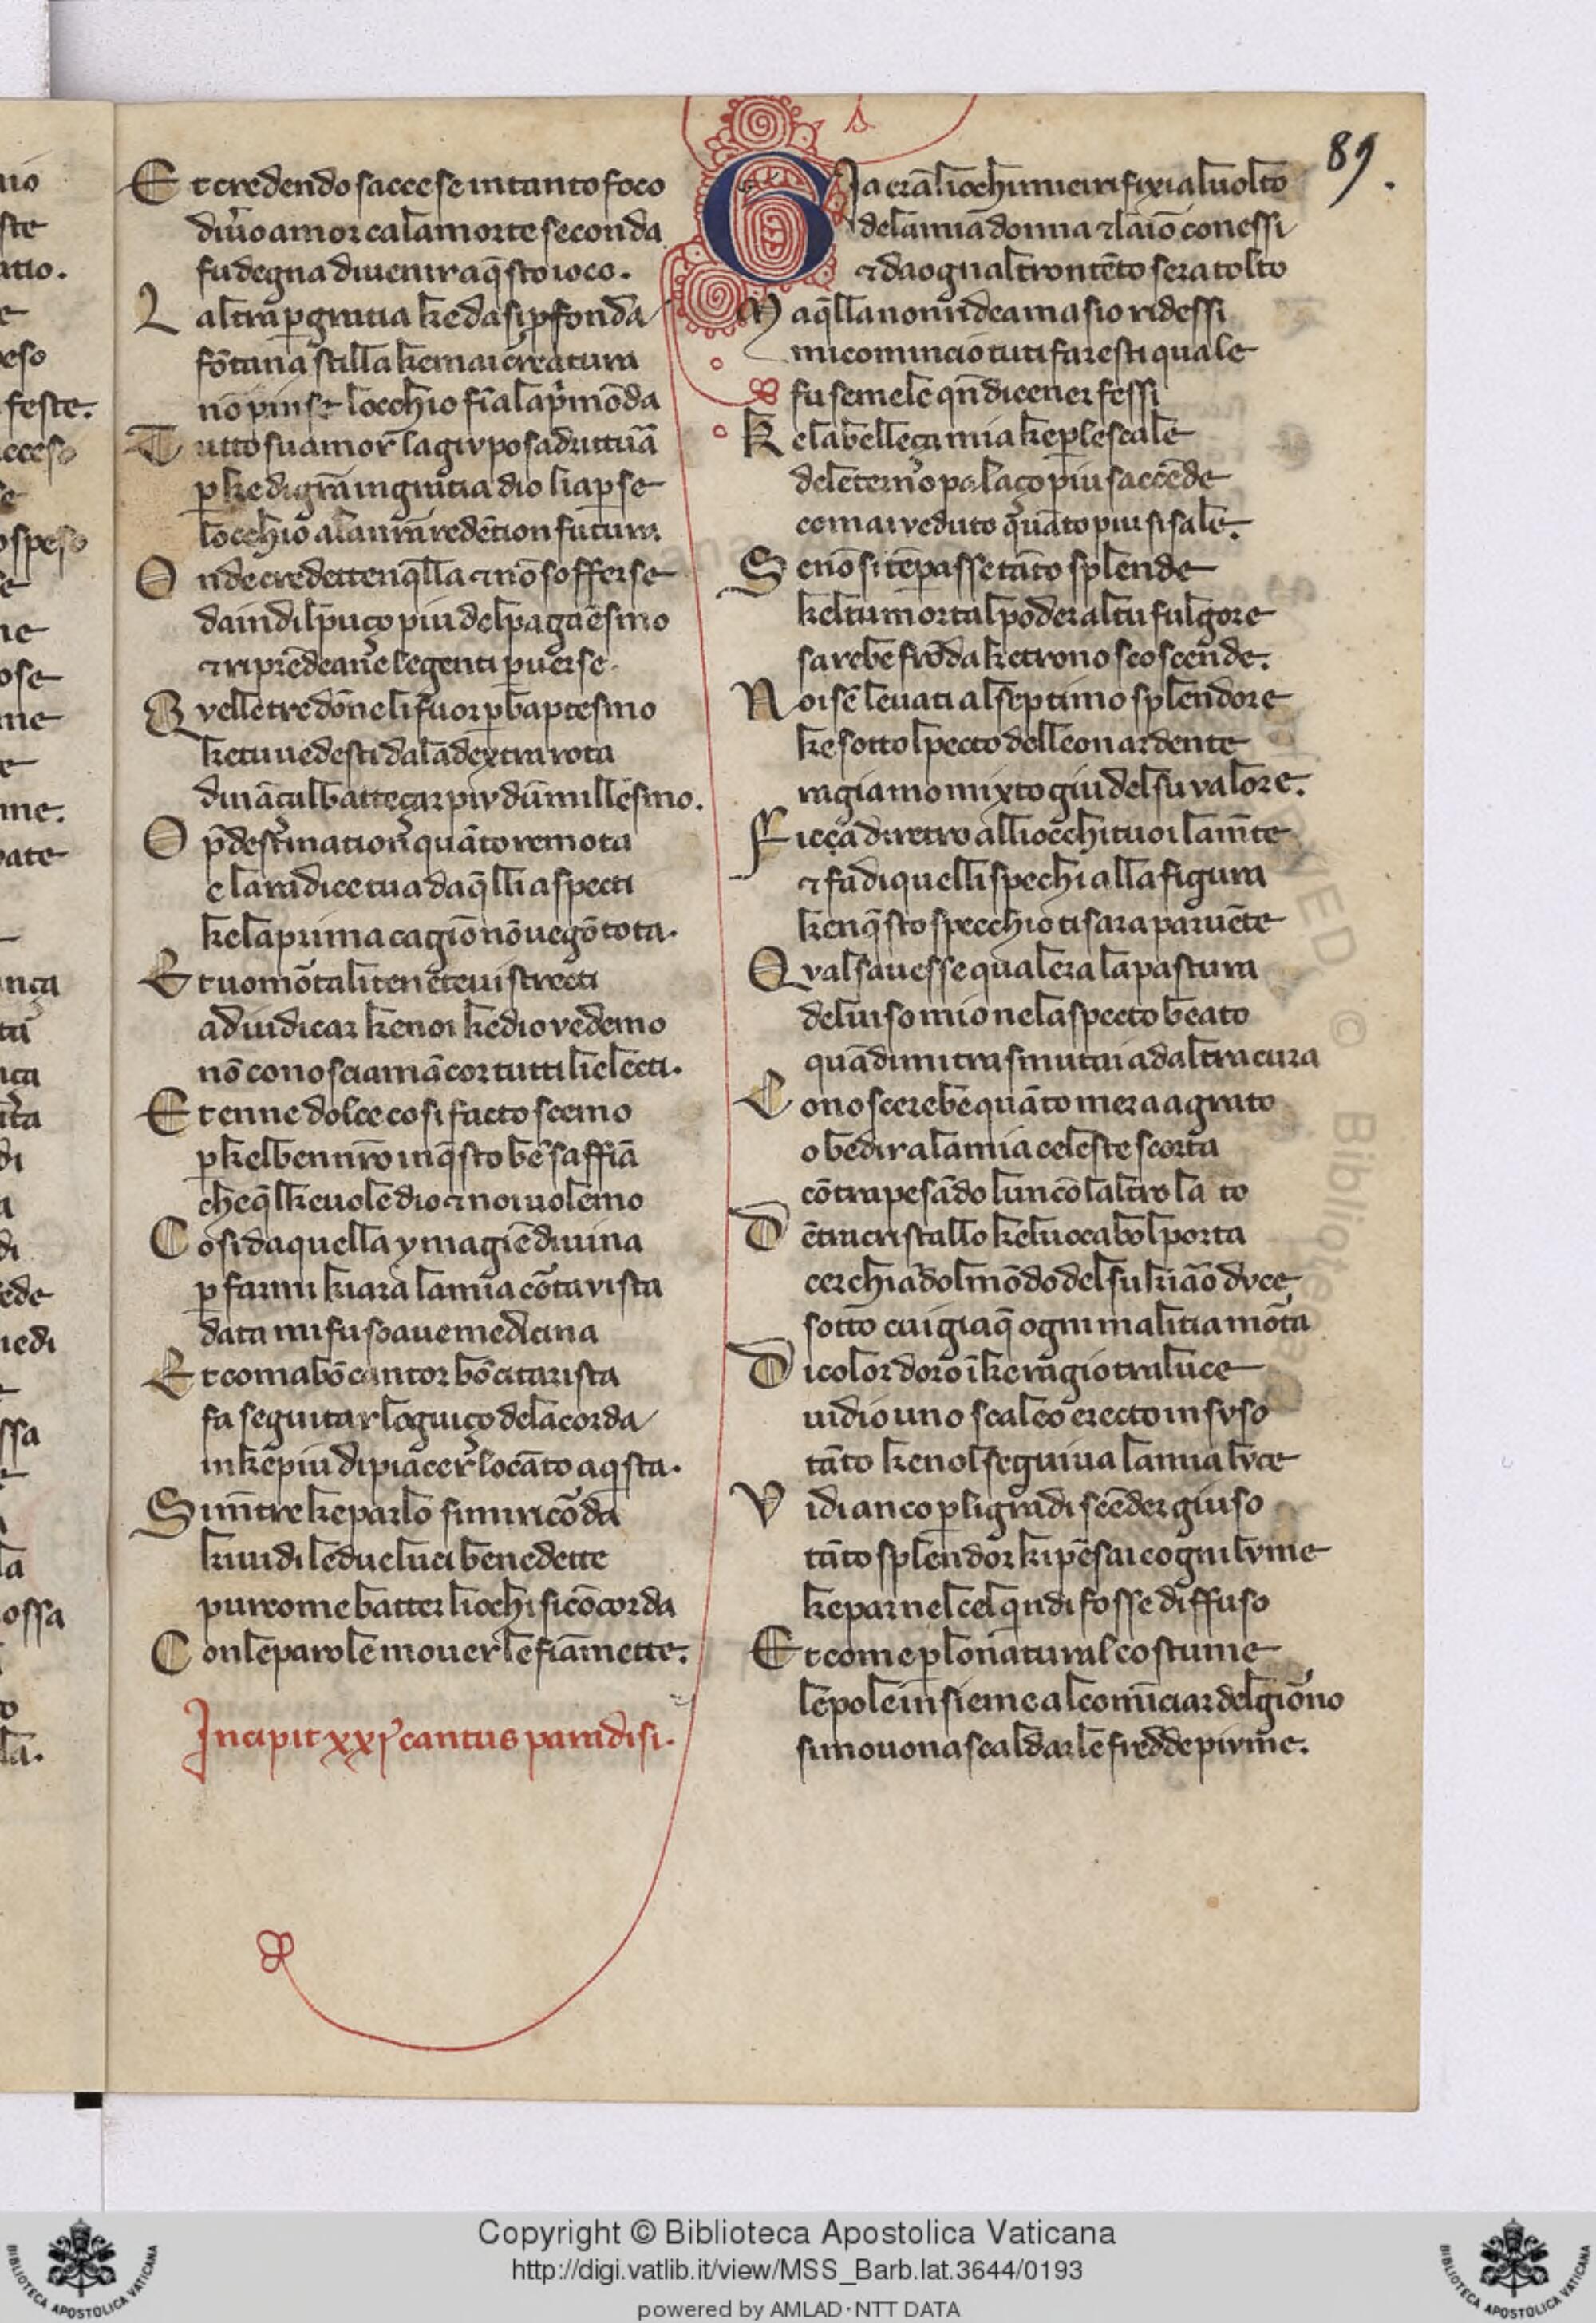 89.
Et credendo saccese in tanto foco
di ũo amor cala morte seconda
fu degna di uenir a q̃sto ioco.
Laltra p̱ gratia ke da si p̱fonda
fõtana stilla ke mai creatura
nõ pinse locchio fĩ ala p̃ mõda
Tutto su amor lagiv posa drittũa
p̱ ke di grã in gratia dio li ap̱se
locchio ala nr̃a redẽtion futura
Onde credette in q̃lla ⁊ nõ sofferse
da indi l puço piu del paganẽsmo
⁊ riprẽdeane le genti p̱uerse.
Qvelle tre dõne li fuor p̱ baptesmo
ke tu uedesti dala dextra rota
dinãci al batteçar piv dũ millesmo.
O p̃destination quãto remota
e la radice tua da q̃lli aspecti
ke la prima cagiõ nõ uegõ tota.
Et uo mõtali tenẽteui strecti
a diudicar ke noi ke dio vedemo
nõ conosciam ãcor tutti li electi.
Et enne dolce cosi facto scemo
p̱ kel ben nr̃o in q̃sto bẽ saffiã
che q̃l ke uole dio ⁊ noi uolemo
Cosi da quella ymagiẽ diuina
p̱ farmi kiara la mia cõta vista
data mi fu soaue medicina
Et com a bõ cantor bõ citarista
fa seguitar lo guiço dela corda
in ke piu di piacer lo cãto aq̃sta.
Si mẽtre ke parlo si mi ricõda
ki uidi le due luci benedette
pur come batter li ochi si cõcorda
Con le parole mouer le fiãmette.
Incipit xxj cantus paradisi.
Gia erã li ochi miei rifixi al uolto
dela mia donna ⁊ laĩo con essi
⁊ da ogn altro ntẽto sera tolto
Ma q̃lla non ridea ma sio ridessi
mi comincio tu ti faresti quale
fu semele qñ di cener fessi
Ke la belleça mia ke p̱ le scale
del eterno palaço piu saccẽde
com ai veduto quãto piu si sale.
Se nõ si tẽpasse tãto splende
kel tu mortal poder al tu fulgore
sarebe frõda ke trono scoscende.
Noi sẽ leuati al septimo splendore
ke sotto l pecto del leon ardente
ragia mo mixto giu del su valore.
Ficca diretro alli occhi tuoi la mẽte
⁊ fa di quelli spechi alla figura
ken q̃sto specchio ti sara paruẽte
Qval sauesse qual era la pastura
del uiso mio nel aspecto beato
quãdi mi trasmutai ad altra cura
Conoscerebe quãto mera a grato
obedir ala mia celeste scorta
cõtrapesãdo lun cõ laltro la to
Dẽtr al cristallo kel uocabol porta
cerchiãdol mõdo del su kiaõ dvce
sotto cui giaq̃ ogni malitia mõta
Di color doro ĩ ke ragio traluce
uidio uno scaleo erecto in svso
tãto ke nol seguiua la mia lvce
Vidi anco p̱ li gradi scẽder giuso
tãto splendor ki pẽsai cogni lvme
ke par nel cel q̃ndi fosse diffuso
Et come p̱ lo natural costume
le pole insieme al comĩciar del giõno
si mouon a scaldar le fredde pivme.
Copyright © Biblioteca Apostolica Vaticana
http://digi.vatlib.it/view/MSS_Barb.lat.3644/0193
powered by AMLAD·NTT DATA